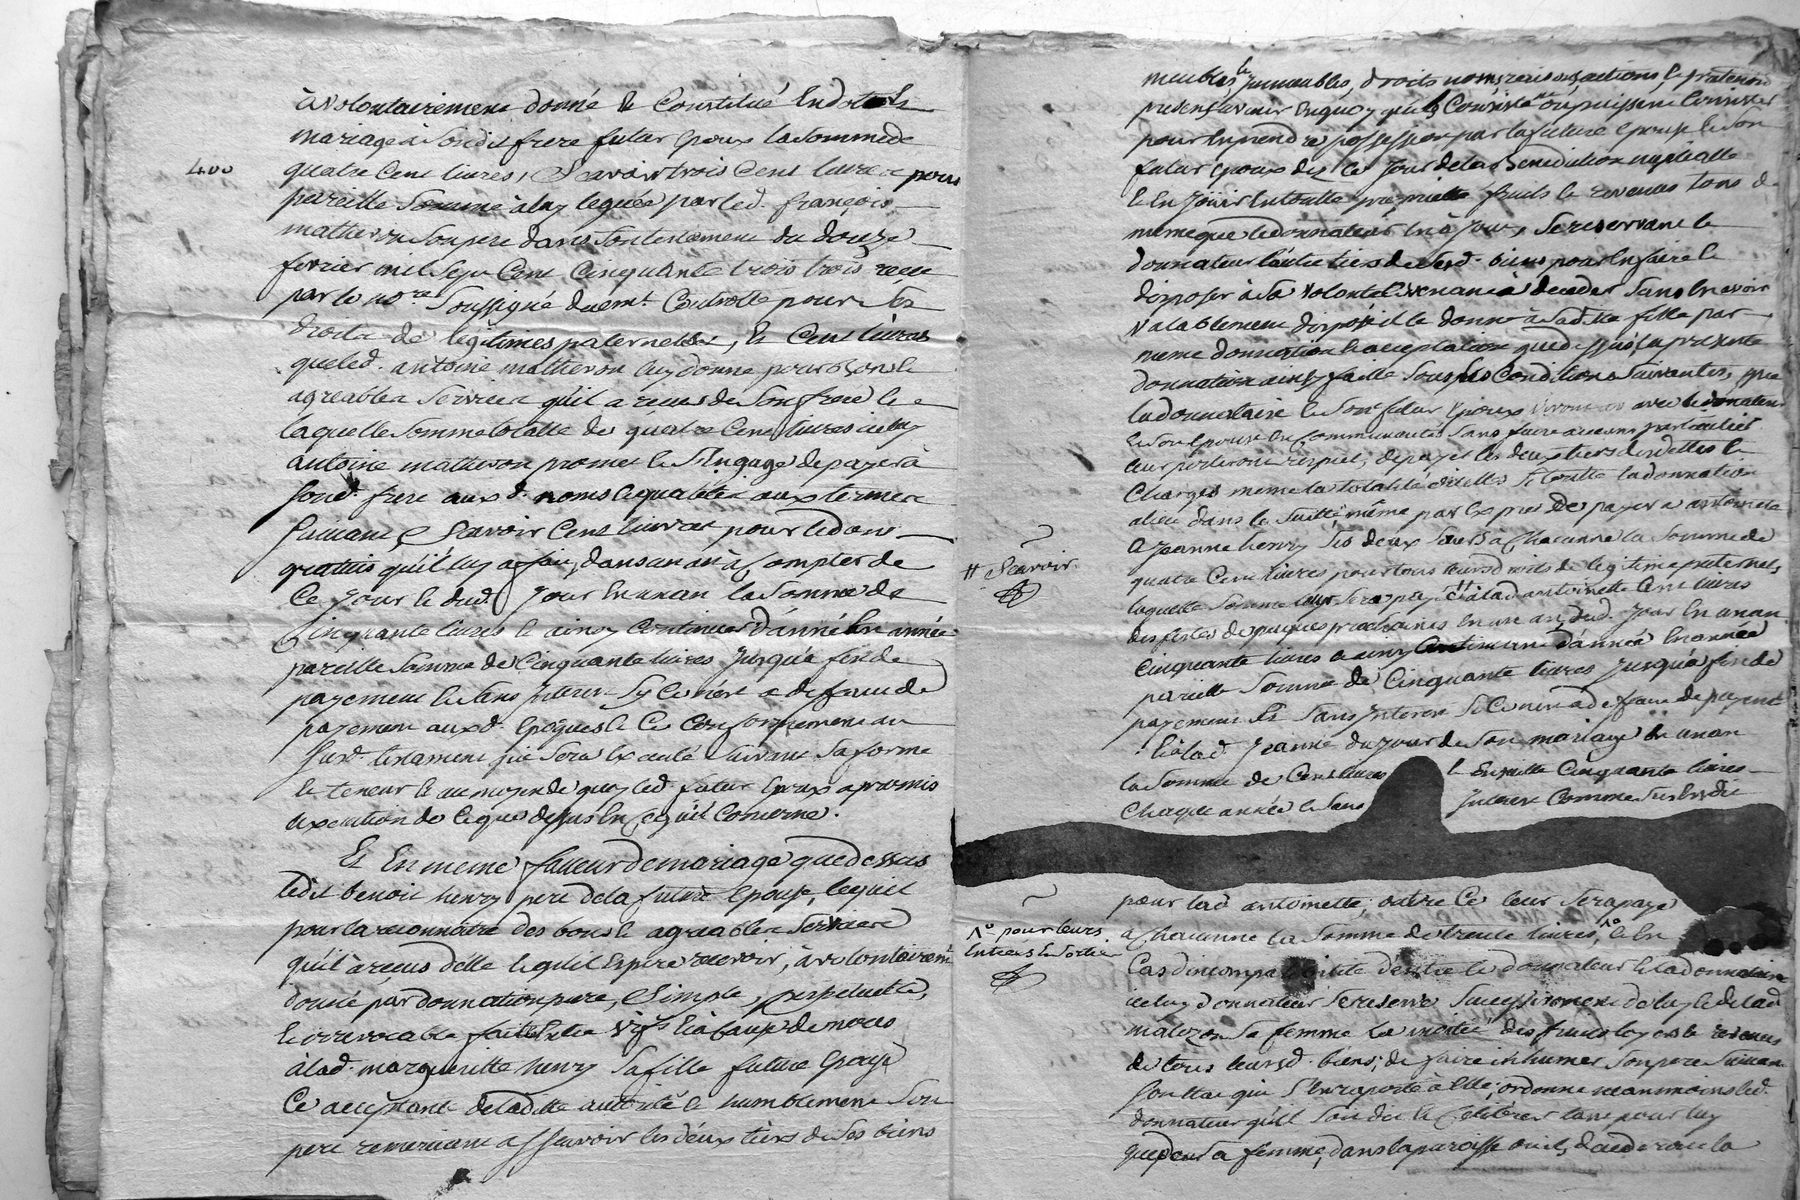 à volontairement donné & Constitué En dot &
mariage à Sondit frere futur Epoux la Somme de
400
quatre Cent livres, Scavoir trois Cent livres pour
pareille Somme à luy leguée par led. françois
matheron Son pere dans Son testament du douze
fevrier mil Sept Cent Cinquante trois recu
par le no.re Soussigné duemt. Controllé pour Ses
droits de legitimes paternelles, Et Cent livres
que led. antoine matheron luy donne pour bons &
agreables Services qu'il a recus de Son frere
laquelle Somme totalle de quatre Cent livres icelluy
antoine matheron promet & S'Engage de payer à
Sond. frere auxd. noms & qualités aux termes
Suivant, Scavoir Cent livres pour led don
gratuis qu'il luy a fait, dans un an à Compter de
Ce Jour & dud. Jour En un an la Somme de
Cinquante livres & ainsy Continuer d'année En année
pareille Somme de Cinquante livres Jusqu'à fin de
payement & Sans Interest Sy Ce n'est a defaut de
payement auxd. Epoques & Ce Conformement au
Susd. testament qui Sera Executé Suivant Sa forme
& teneur & au moyen de quoy led. futur Epoux a promis
Execution de Ce que dessus En Ce qu'il Concerne.
Et En meme faveur de mariage que dessus
ledit benoit henry pere de la future Epouse, lequel
pour la reconnoitre des bons & agreables Services
qu'il à reçus d'elle & qu'il Espere recevoir, à volontairemt.
donné par donnation pure, Simple, perpetuelle,
& irrevocable faitte Entre vifs & à Cause de noces
à lad. margueritte henry Sa fille future Epouse
Ce acceptante de ladtte autorité & humblement Son
pere remerciant assavoir les deux tiers de Ses biens
meubles & Immeubles, droits noms raisons actions, & pretentions
presens & avenir En quoy qu'ils Consistent ou puissent Consister
pour En prendre possession par la future Epouse & Son
futur Epoux des le Jour de la Benediction nuptialle
& En Jouir En toutte proprieté fruits & revenus tous de
meme que le donnateur En à Joui, Se reservant le
donnateur l'autre tiers de Sesd. biens pour En faire &
disposer à Sa volonté & venant à deceder Sans En avoir
valablement disposé il le donne à Sadtte fille par
meme donnation & acceptation que dessus, la presente
donnation ainsy faitte Sous les Conditions Suivantes, que
la donnataire & Son futur Epoux vivront avec le donnateur
& Son Epouse En Communauté Sans faire aucuns particulier
leur porteront respect, de payer les deux tiers des dettes &
Charges meme la totalité d'icelles Si toutte la donnation
a lieu dans la Suitte, même par Exprés De payer a antoinette
& Jeanne henry Ses deux Soeurs à Chacune la Somme de
quatre Cent livres pour tous leurs droits de legitime paternels
# Scavoir
laquelle Somme leur Sera payé # à lad antoinette Cent livres
des festes de paques prochaines En un an, dud. Jour En un an
Cinquante livres & ainsy Continuant d'année En année
pareille Somme de Cinquante livres Jusqu'à fin de
payement & Sans Interest Si Ce n'est a defaut de payemt.
& à lad. Jeanne du Jour de Son mariage En un an
la Somme de Cent livres & Ensuitte Cinquante livres
Chaque année & Sans Interest Comme Sus Est dit
pour lad antoinette, outre Ce leur Sera payé
1° pour leurs
Entrees En Sortie
a Chacune la Somme de trente livres, 1° & En
Cas d'incompatibilité Entre le donnateur & la donnataire
iceluy donnateur Se reserve Successivement de luy & de lad
malozon Sa femme la moitié des fruits & revenus
de tous Leursd. biens; de faire inhumer Son pere Suivant
Son Etat qui S'En raporte à Elle, ordonne neanmoins led.
donnateur qu'il Soit dit & Celebré tant pour luy
que pour Sa femme, dans la paroisse ou ils decederont la